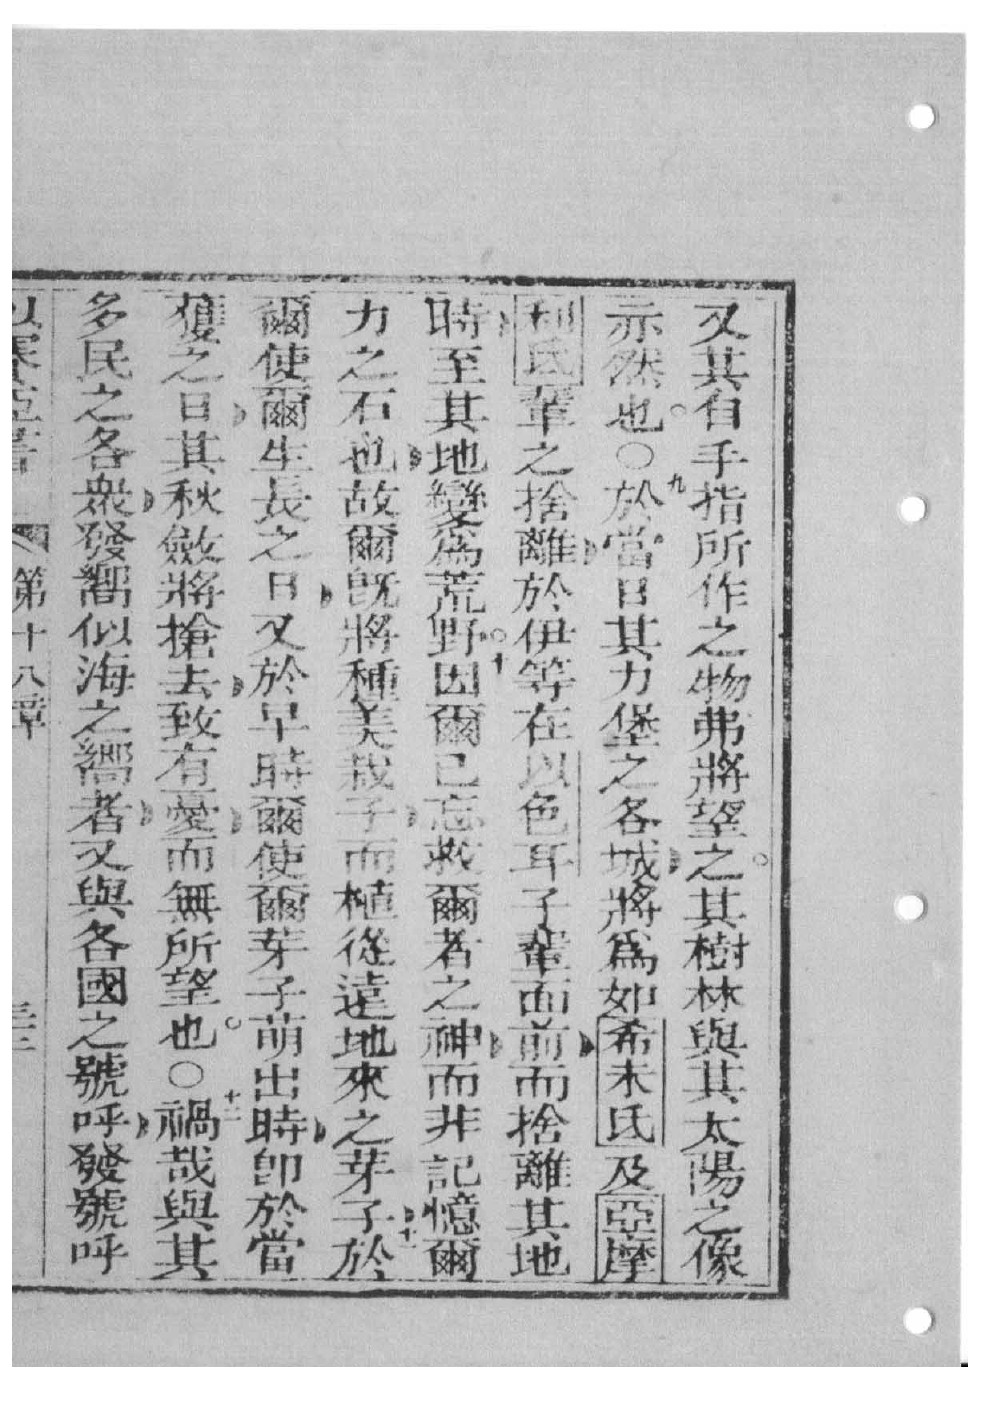 又其自手指所作之物弗將望之。其樹林與其太陽之像
亦然也。○九於當日其力堡之各城將為如希未氏及亞摩
利氏輩之捨離於伊等在以色耳子輩面前而捨離其地
時至其地變為荒野。十因爾已忘救爾者之神而非記憶爾
力之石也故爾既將種美栽子而植從遠地來之芽子十一於
爾使爾生長之日又於早時爾使爾芽子萌出時卽於當
獲之日其秋斂將搶去致有憂而無所望也。○十二禍哉與其
多民之各衆發嚮似海之嚮者又與各國之號呼發號呼
以賽亞書 第十八章 三十二